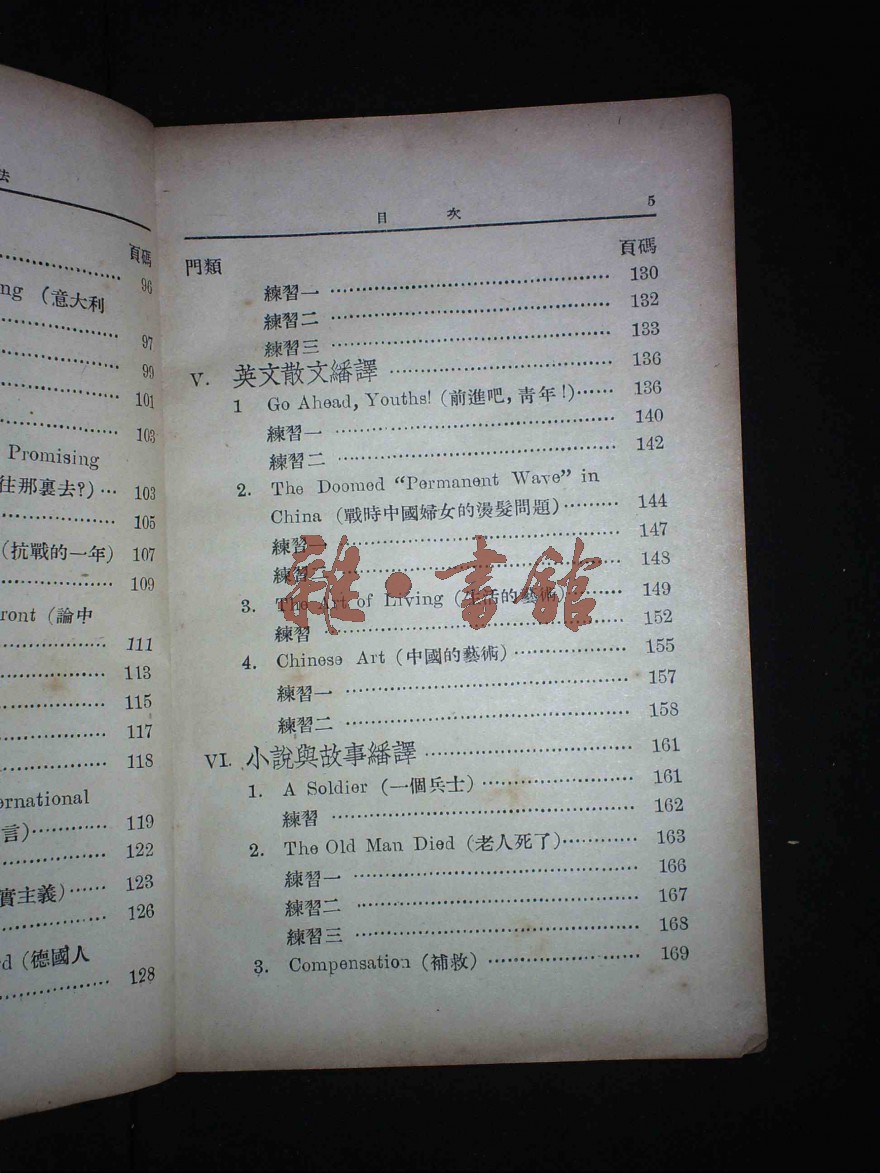 法
頁碼
96
ng (意大利
97
99
101
103
Promising
往那裏去?)… 103
105
(抗戰的一年) 107
109
ront (論中
111
113
115
117
118
ernational
言)………… 119
122
實主義)…… 123
126
d (德國人
128
目 次 5
門類 頁碼
練習一 ………… 130
練習二 ………… 132
練習三 ………… 133
V. 英文散文繙譯 ………… 136
1 Go Ahead, Youths! (前進吧,靑年!)…… 136
練習一 ………… 140
練習二 ………… 142
2. The Doomed “Permanent Wave” in
China (戰時中國婦女的燙髮問題)……… 144
練習一 ………… 147
練習二 ………… 148
3. The Art of Living (生活的藝術)……… 149
練習 ………… 152
4. Chinese Art (中國的藝術) ………… 155
練習一 ………… 157
練習二 ………… 158
VI. 小說與故事繙譯 ………… 161
1. A Soldier (一個兵士) ………… 161
練習 ………… 162
2. The Old Man Died (老人死了)………… 163
練習一 ………… 166
練習二 ………… 167
練習三 ………… 168
3. Compensation (補救) ………… 169
雜·書館